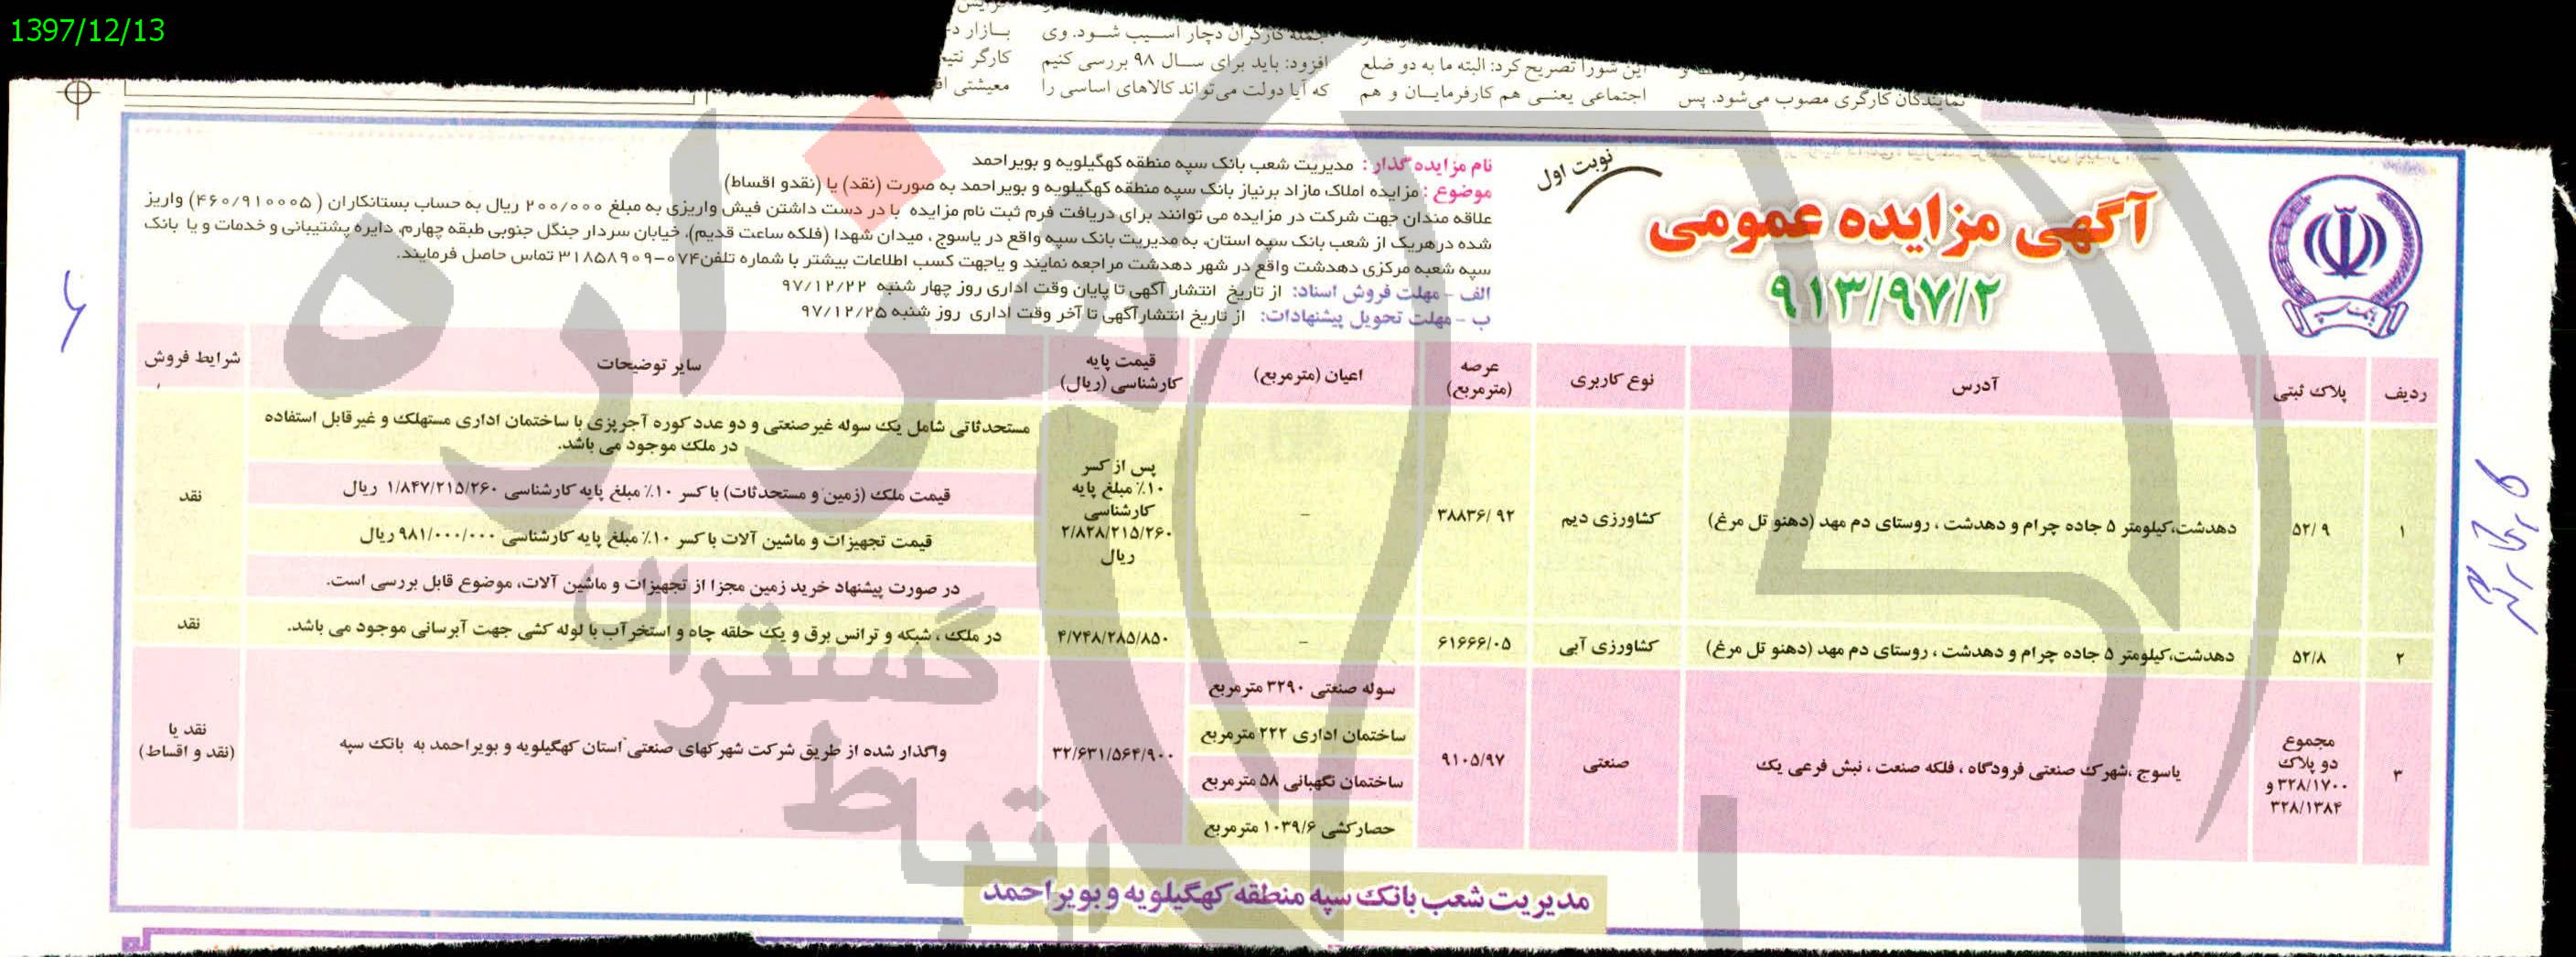 1397/12/13
بازار د
کارگر نتیج
معیشتی اف
جمله کارگران دچار آسیب شود. وی
افزود: باید برای ســال ۹۸ بررسی کنیم
که آیا دولت می‌تواند کالاهای اساسی را
این شورا تصریح کرد: البته ما به دو ضلع
اجتماعی یعنــی هم کارفرمایــان و هم
نمایندگان کارگری مصوب می‌شود. پس
بانک سپه
آگهی مزایده عمومی
۹۱۳/۹۷/۲
نوبت اول
نام مزایده گذار : مدیریت شعب بانک سپه منطقه کهگیلویه و بویراحمد
موضوع : مزایده املاک مازاد برنیاز بانک سپه منطقه کهگیلویه و بویراحمد به صورت (نقد) یا (نقدو اقساط)
علاقه مندان جهت شرکت در مزایده می توانند برای دریافت فرم ثبت نام مزایده با در دست داشتن فیش واریزی به مبلغ ۲۰۰/۰۰۰ ریال به حساب بستانکاران (۴۶۰/۹۱۰۰۰۵) واریز
شده درهریک از شعب بانک سپه استان، به مدیریت بانک سپه واقع در یاسوج ، میدان شهدا (فلکه ساعت قدیم)، خیابان سردار جنگل جنوبی طبقه چهارم، دایره پشتیبانی و خدمات و یا بانک
سپه شعبه مرکزی دهدشت واقع در شهر دهدشت مراجعه نمایند و یاجهت کسب اطلاعات بیشتر با شماره تلفن۰۷۴-۳۱۸۵۸۹۰۹ تماس حاصل فرمایند.
الف - مهلت فروش اسناد: از تاریخ انتشار آگهی تا پایان وقت اداری روز چهار شنبه ۹۷/۱۲/۲۲
ب - مهلت تحویل پیشنهادات: از تاریخ انتشارآگهی تا آخر وقت اداری روز شنبه ۹۷/۱۲/۲۵
ردیف
پلاک ثبتی
آدرس
نوع کاربری
عرصه
(مترمربع)
اعیان (مترمربع)
قیمت پایه
کارشناسی (ریال)
سایر توضیحات
شرایط فروش
۱
۵۲/۹
دهدشت،کیلومتر ۵ جاده چرام و دهدشت ، روستای دم مهد (دهنو تل مرغ)
کشاورزی دیم
۳۸۸۳۶/۹۲
–
پس از کسر
۱۰٪ مبلغ پایه
کارشناسی
۲/۸۲۸/۲۱۵/۲۶۰
ریال
مستحدثاتی شامل یک سوله غیرصنعتی و دو عدد کوره آجرپزی با ساختمان اداری مستهلک و غیرقابل استفاده
در ملک موجود می باشد.
قیمت ملک (زمین و مستحدثات) با کسر ۱۰٪ مبلغ پایه کارشناسی ۱/۸۴۷/۲۱۵/۲۶۰ ریال
قیمت تجهیزات و ماشین آلات با کسر ۱۰٪ مبلغ پایه کارشناسی ۹۸۱/۰۰۰/۰۰۰ ریال
در صورت پیشنهاد خرید زمین مجزا از تجهیزات و ماشین آلات، موضوع قابل بررسی است.
نقد
۲
۵۲/۸
دهدشت،کیلومتر ۵ جاده چرام و دهدشت ، روستای دم مهد (دهنو تل مرغ)
کشاورزی آبی
۶۱۶۶۶/۰۵
–
۴/۷۴۸/۲۸۵/۸۵۰
در ملک ، شبکه و ترانس برق و یک حلقه چاه و استخرآب با لوله کشی جهت آبرسانی موجود می باشد.
نقد
۳
مجموع
دو پلاک
۳۲۸/۱۷۰۰ و
۳۲۸/۱۳۸۴
یاسوج ،شهرک صنعتی فرودگاه ، فلکه صنعت ، نبش فرعی یک
صنعتی
۹۱۰۵/۹۷
سوله صنعتی ۳۲۹۰ مترمربع
ساختمان اداری ۲۲۲ مترمربع
ساختمان نگهبانی ۵۸ مترمربع
حصارکشی ۱۰۳۹/۶ مترمربع
۳۲/۶۳۱/۵۶۴/۹۰۰
واگذار شده از طریق شرکت شهرکهای صنعتی استان کهگیلویه و بویراحمد به بانک سپه
نقد یا
(نقد و اقساط)
مدیریت شعب بانک سپه منطقه کهگیلویه و بویراحمد
هزاره
گستران
ارتباط
کاروکارگر
۶